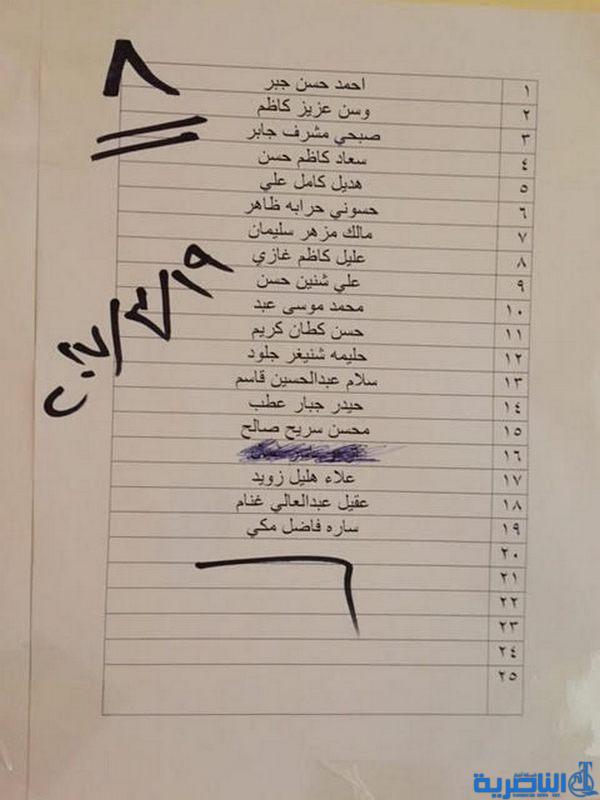 ٨
١ احمد حسن جبر
٢ وسن عزيز كاظم
٣ صبحي مشرف جابر
٤ سعاد كاظم حسن
٥ هديل كامل علي
٦ حسوني حرابه ظاهر
٧ مالك مزهر سليمان
٨ عليل كاظم غازي
٩ علي شنين حسن
١٠ محمد موسى عبد
١١ حسن كطان كريم
١٢ حليمه شنيغر جلود
١٣ سلام عبدالحسين قاسم
١٤ حيدر جبار عطب
١٥ محسن سريح صالح
١٦
١٧ علاء هليل زويد
١٨ عقيل عبدالعالي غنام
١٩ ساره فاضل مكي
٢٠
٢١
٢٢
٢٣
٢٤
٢٥
الناصرية